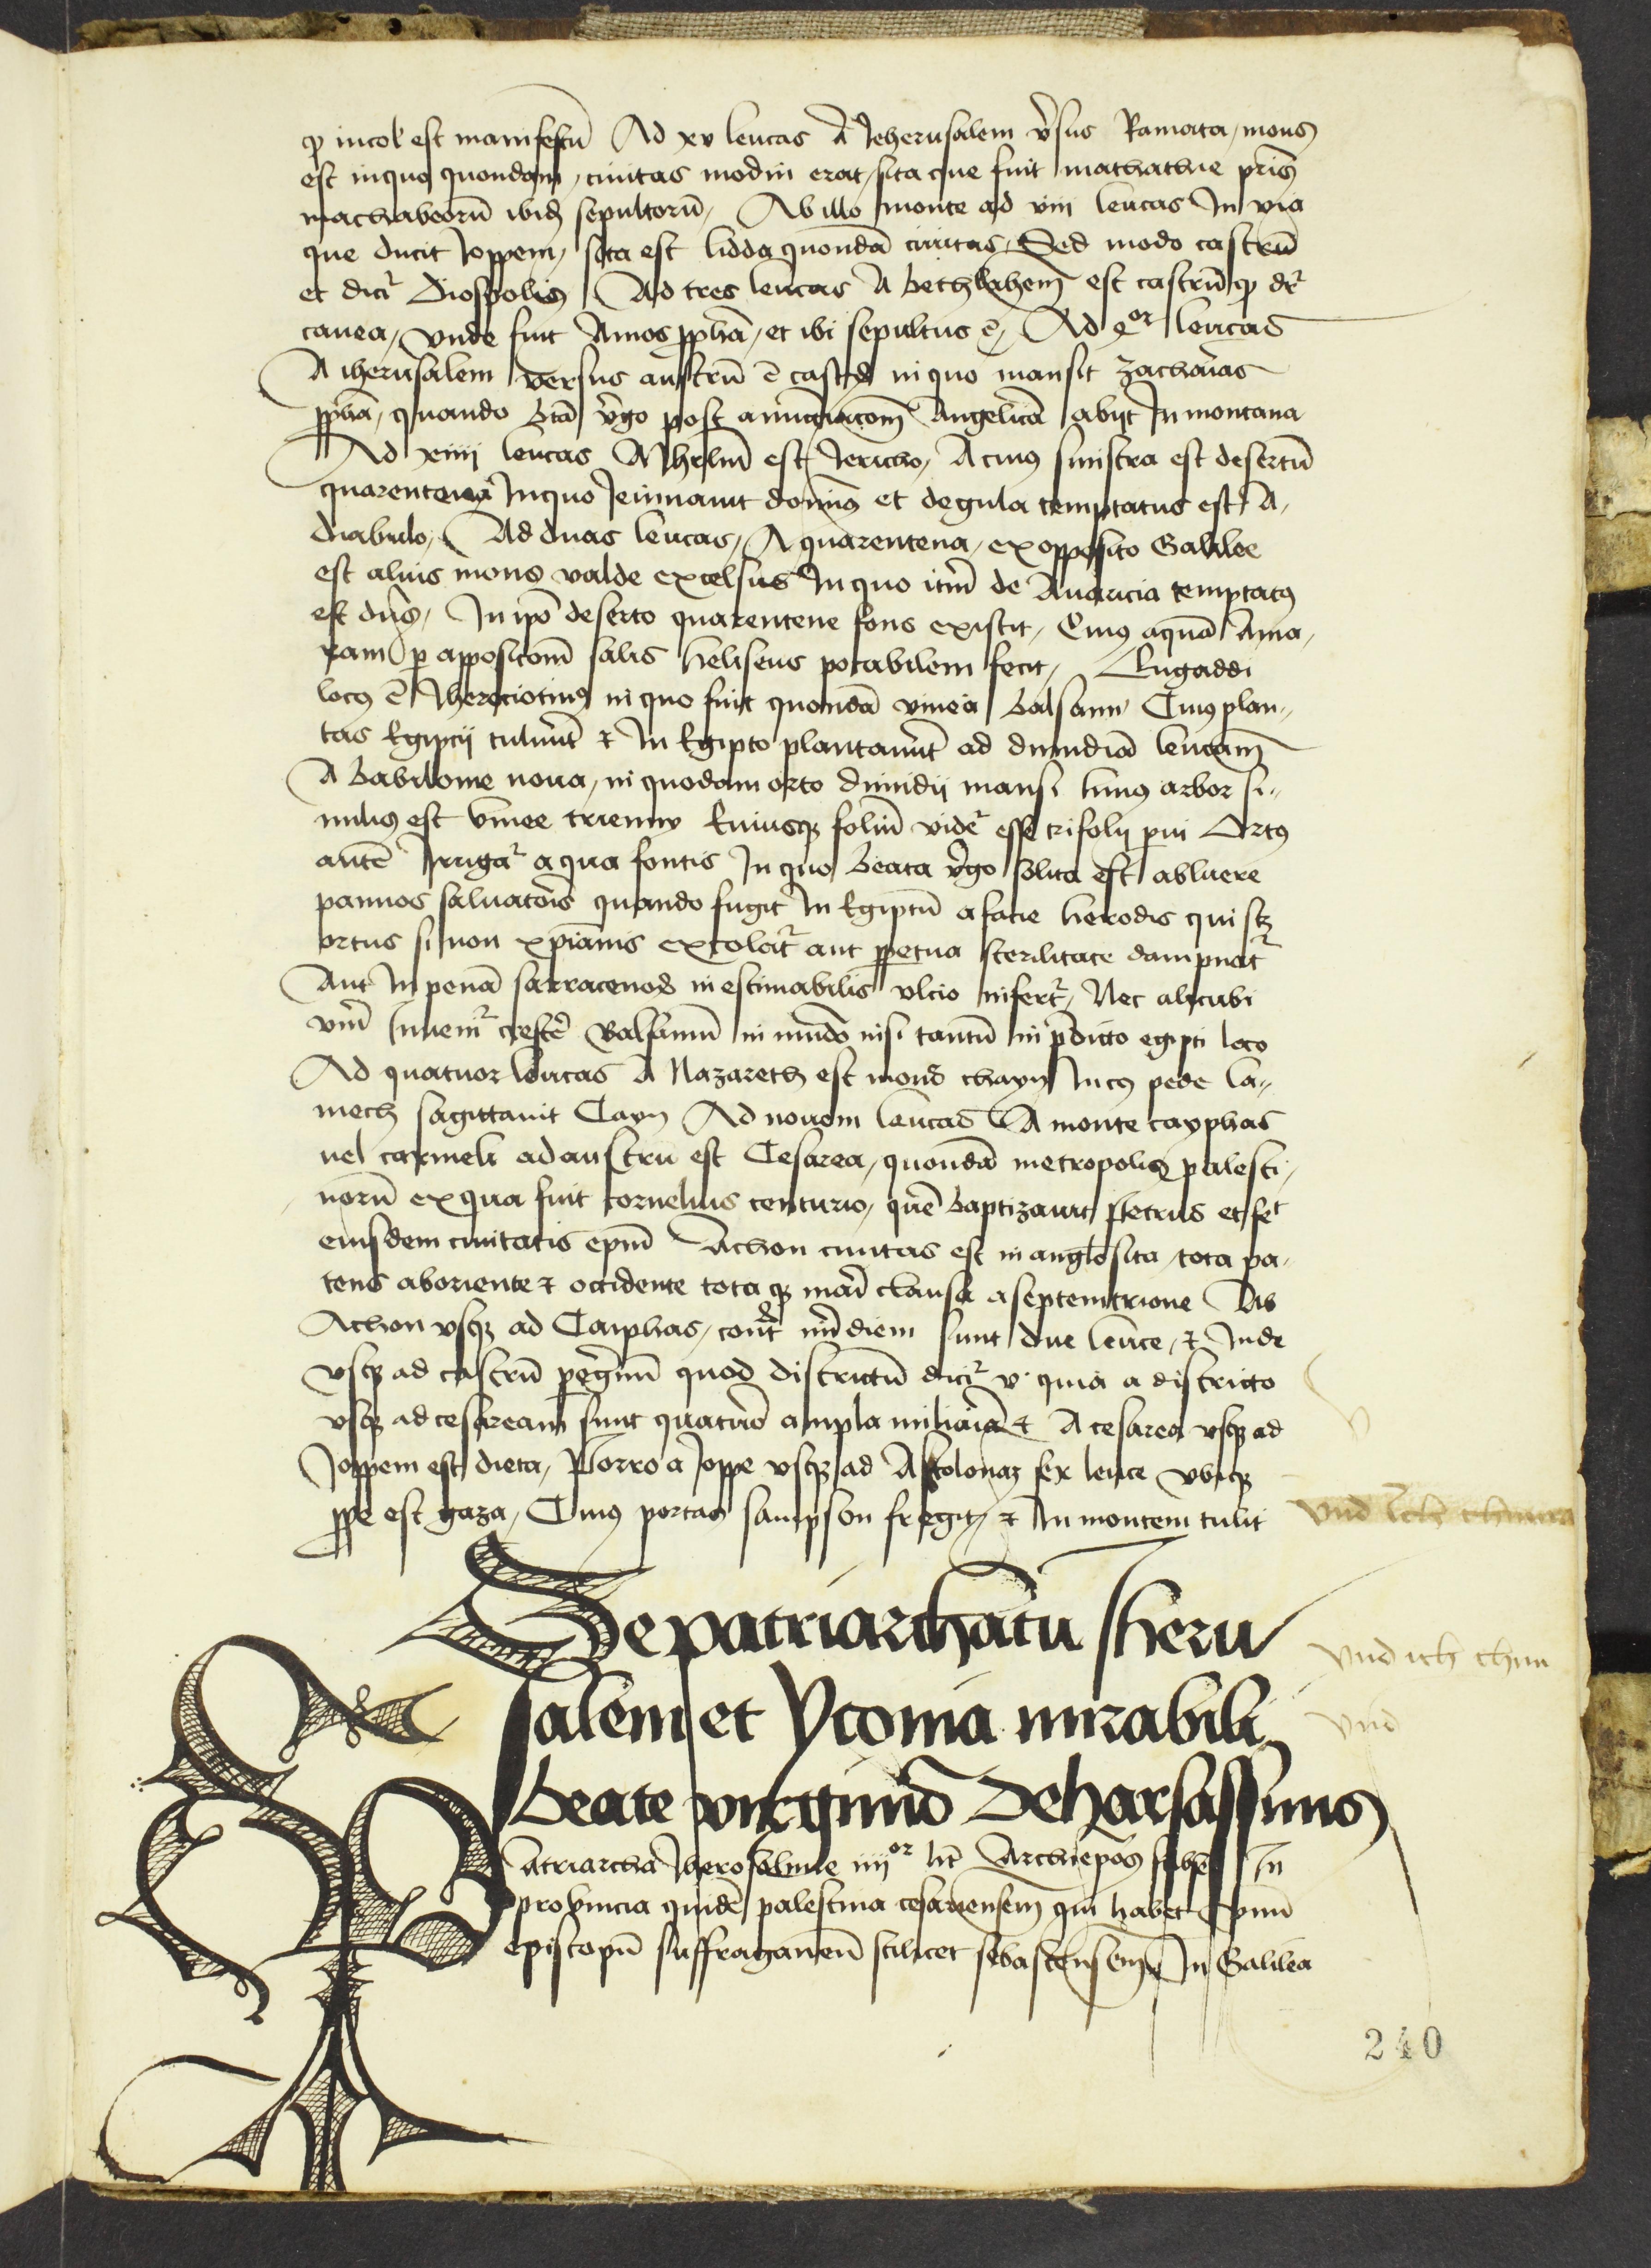 ꝙ incol' est manifestū Ad xv leucas A Jeherusalem v̄sus Ramata, mons
est inquo quondam, ciuitas modin erat, sita que fuit mathathie pris
machabeorū ibid̄ sepultorū, Ab illo monte ad viii leucas In via
que ducit Joppem, sita est lidda quondā ciuitas, Sed modo castrū
et dicit᷑ Diospolis Ad tres leucas A Bethlehem est castrū ꝙ dr᷑
cauea, vnde fuit Amos ꝓphā, et ibi sepultus ē, Ad qor leucas
A iherusalem versus austrū ē in quo mansit zacharias
ꝓphā, quando Btā v̄go post annūciacōm Angelicā abijt In montana
Ad xiiii leucas Ab Jhrlm̄ est Jericho, A cuiꝰ sinistra est desertū
quarentena Inquo Jeiunauit domīs et degula temptatus est A,
diabulo, Ad duas leucas, A quarentena, ex opposito Galilee
est alius mons valde excelsus In quo itm̄ de Auaricia temptatꝰ
est dn̄s, In ip̄o deserto quarentene fons existit, Cuiꝰ aquā Ama,
ram ꝑ apposicōm̄ salis heliseus potabilem fecit, Engaddi
locꝰ ē Jherociotinꝰ in quo fuit quondā vinea Balsami Cuiꝰ plan,,
tas Egipcij tulerūt ⁊ In Egipto plantauerūt ad dimidiā leucam
A Babilonie noua, in quodam orto dimidij mansi huiꝰ arbor si,,
milis est vinee trienny Euiusqꝫ foliū videt᷑ esse trifolij pui Ortꝰ
autē Irrigat᷑ aqua fontis In quo Beata v̄go solita est abluere
pannos saluatoris quando fugit In Egiptū a facie herodis qui sꝫ
ortus si non xp̄ianis excolat᷑ aut ꝑpetua sterilitate dampnat᷑
Aut In penā sarracenos inestimabilis vlcio infert᷑, Nec alicubi
vm̄ Inuenit᷑ crescē Balsamū in mūdo nisi tantū in p̄dicto egipti loco
Ad quatuor leucas A Nazareth est mons chayn In cꝰ pede la,,
mech sagittauit Cayn Ad nouem leucas A monte cayphas
uel carmeli ad austrū est Cesarea, quondā metropolis palesti,
norū ex qua fuit cornelius centurio, quē Baptizauit Petrus et fec̄
eiusdem ciuitatis epm̄ Achon ciuitas est in anglo sita, tota pa,
tens ab oriente ⁊ occidente tota qꝫ mari clausa a septemtrione Ab
Achon vsqꝫ ad Caiphas, cont᷑ mīdiem sunt due leuce, ⁊ Inde
vsqꝫ ad castrū peg̈rinū quod districtū dicit᷑ v· quia a districto
vsqꝫ ad cesaream sunt quatuor ampla miliaria ⁊ A cesarea vsqꝫ ad
Joppem est dieta, Porro a Joppe vsqꝫ ad Askolonaꝫ sex leuce vbiqꝫ
ꝓpe est gaza, Cuiꝰ portas sampson fregit, ⁊ In montem tulit
Vnd Ich thuna
De patriarchatu Iheru
salem et Yconia mirabili
Beate virginis De harsassimus
vnd ich thun
vnd
Patriarcha Iherosolime iiijor ht̄ Archiepōs sub se In
prouincia quidē palestina cesariensem qui habet vnum
episcopū suffraganeū scilicet sebastensem, In Galilea
240